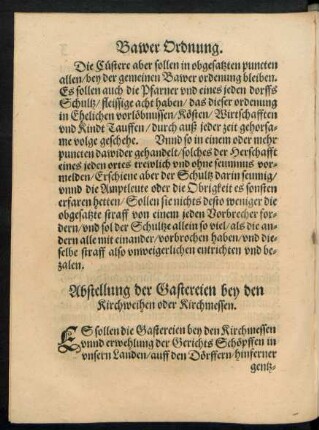 Bawer Ordnung.
Die Cüstere aber sollen in obgesatzten puncten
allen / bey der gemeinen Bawer ordenung bleiben.
Es sollen auch die Pfarner vnd eines jeden dorffs
Schultz / fleissige acht haben / das dieser ordenung
in Ehelichen vorlöbnussen / Kösten / Wirtschafften
vnd Kindt Tauffen / durch auß jeder zeit gehorsa-
me volge geschehe. Vnnd so in einem oder mehr
puncten dawider gehandelt / solches der Herschafft
eines jeden ortes treiwlich vnd ohne seumnus vor-
melden / Erschiene aber der Schultz darin seumig /
vnnd die Amptleute oder die Obrigkeit es sonsten
erfaren hetten / Sollen sie nichts desto weniger die
obgesatzte straff von einem jeden Vorbrecher for-
dern / vnd sol der Schultze allein so viel / als die an-
dern alle mit einander / vorbrochen haben / vnd die-
selbe straff also vnweigerlichen entrichten vnd be-
zalen.
Abstellung der Gastereien bey den
Kirchweihen oder Kirchmessen.
ES sollen die Gastereien bey den Kirchmessen
vnnd erwehlung der Gerichts Schöpffen in
vnsern Landen / auff den Dörffern / hinferner
gentz-